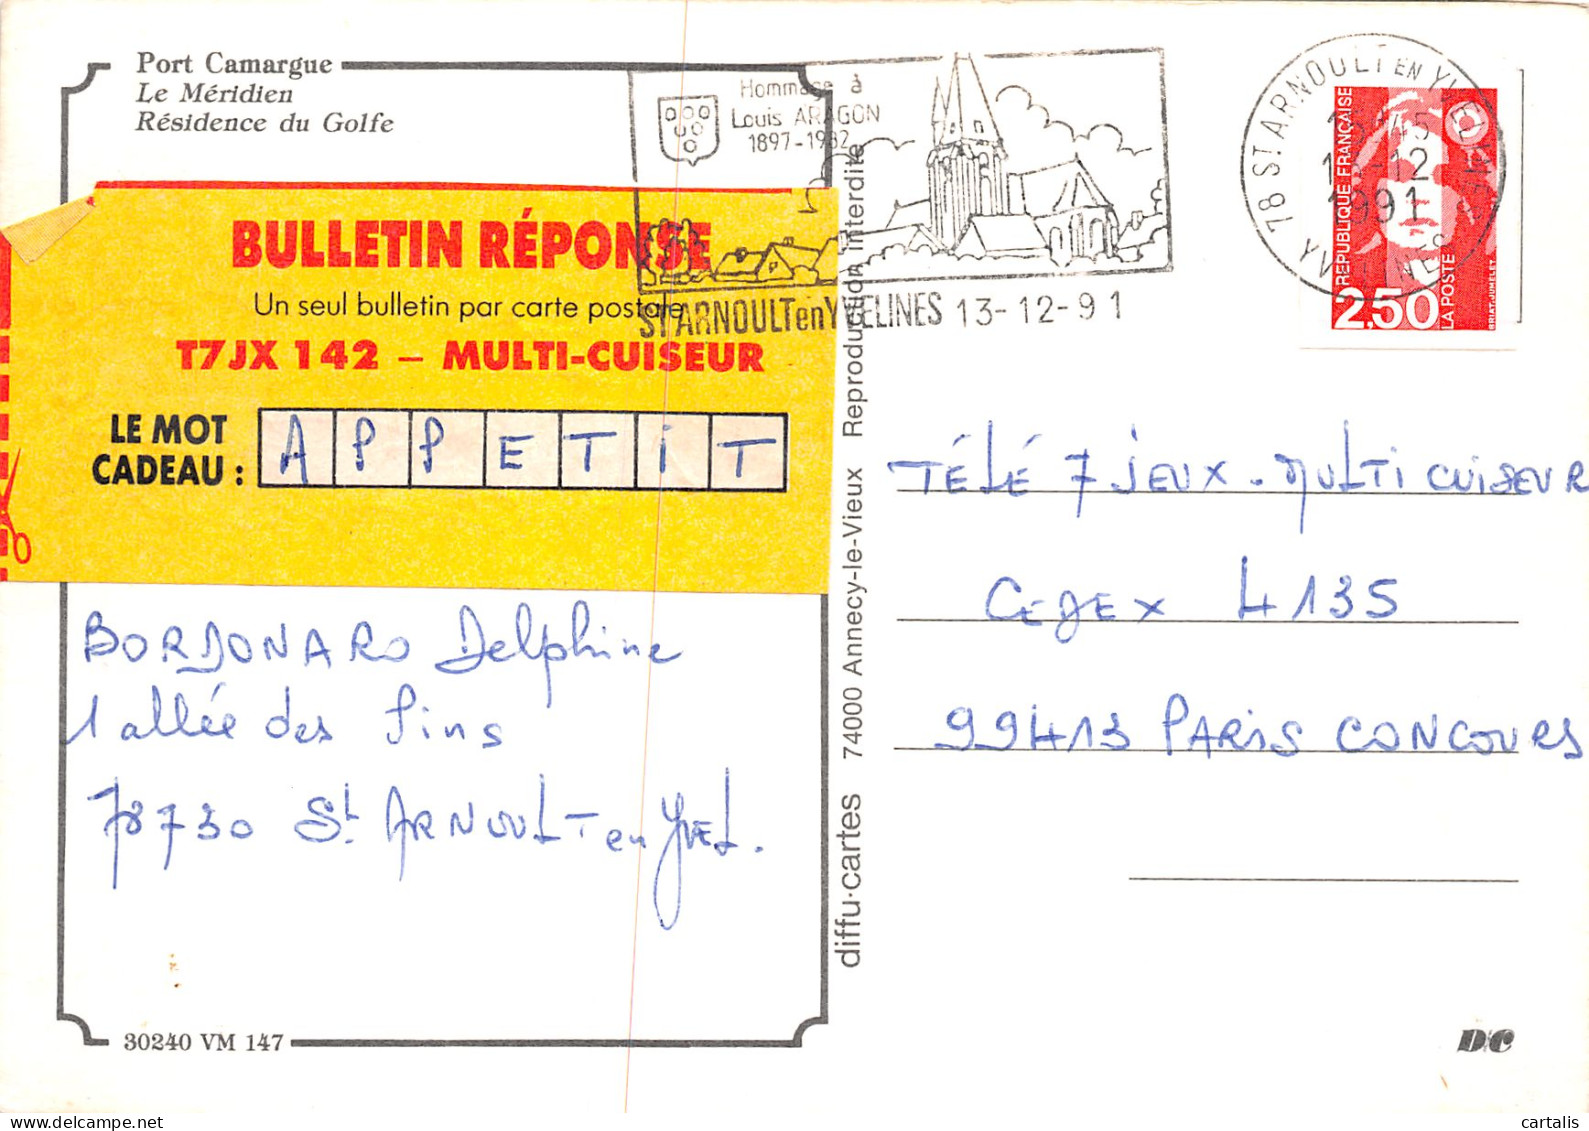 Port Camargue
Le Méridien
Résidence du Golfe
Hommage à
Louis ARAGON
1897-1982
ST ARNOULT en YVELINES 13-12-91
78 ST ARNOULT EN YVELINES
13-12
1991
YVELINES
REPUBLIQUE FRANÇAISE
2,50
LA POSTE
BRIAT-JUMELET
BULLETIN RÉPONSE
Un seul bulletin par carte postale
T7JX 142 – MULTI-CUISEUR
LE MOT
CADEAU :
APPETIT
BORDONARO Delphine
1 allée des Pins
78730 St. ARNOULT en YVEL.
30240 VM 147
diffu·cartes 74000 Annecy-le-Vieux Reproduction interdite
TÉLÉ 7 JEUX - MULTI CUISEUR
CEDEX 4135
99413 PARIS CONCOURS
D/C
cartalis
delcampe.net